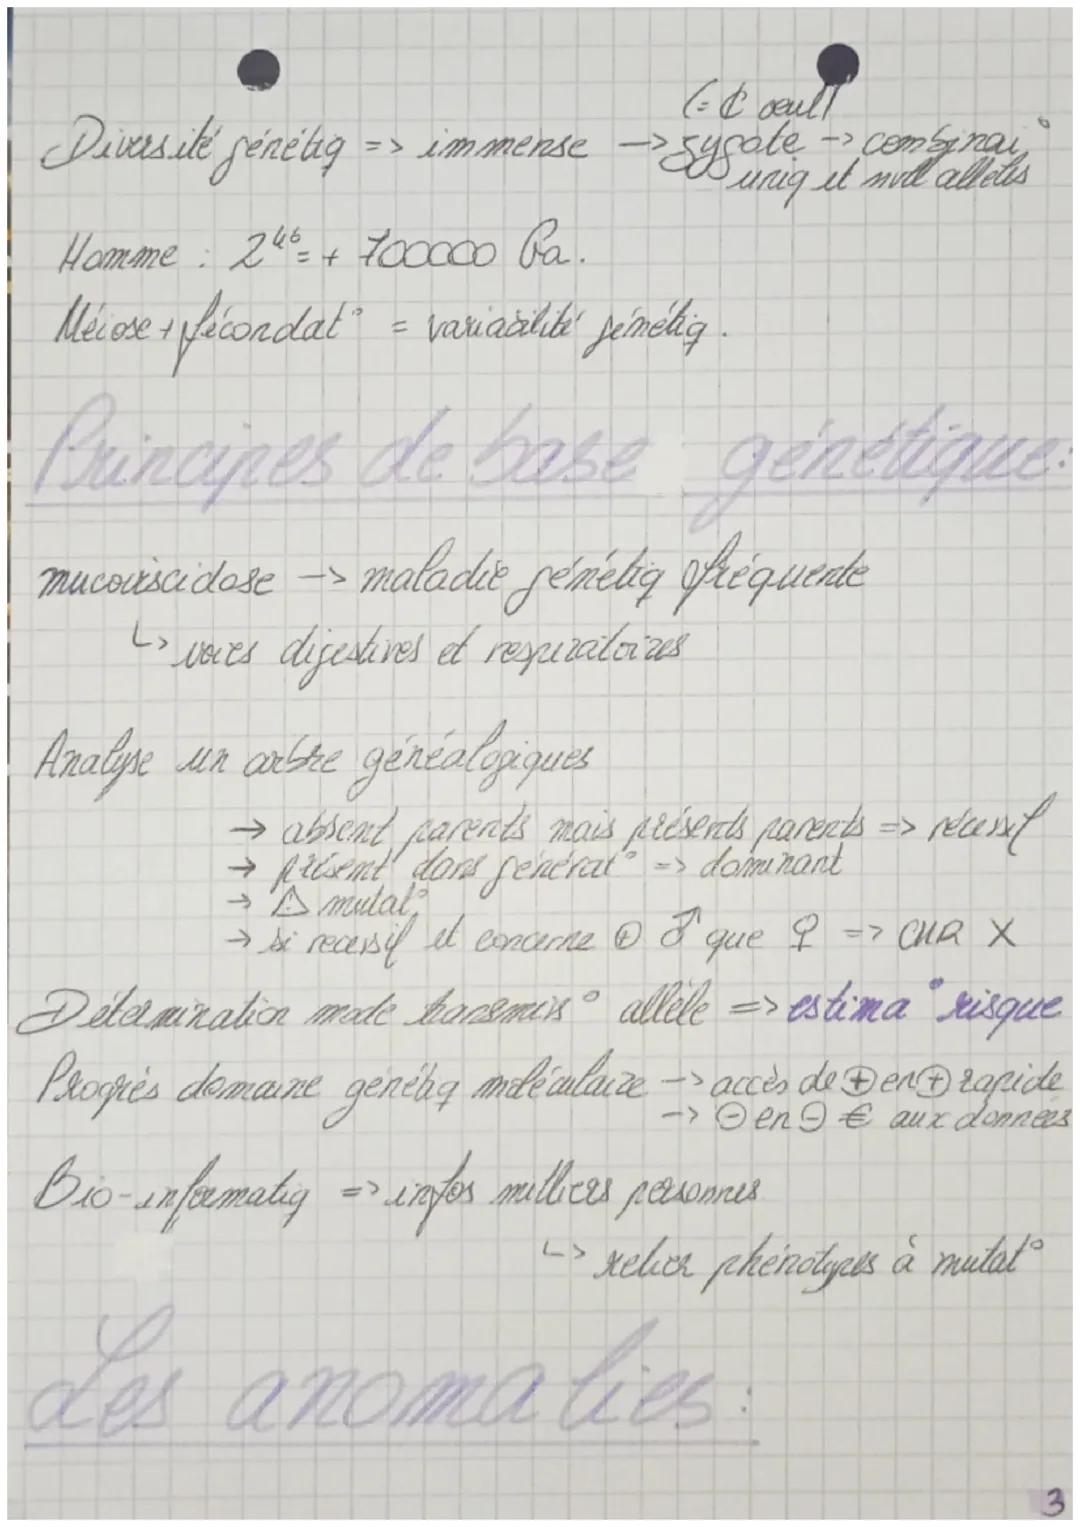 (= ₵ oeuf)
Diversité génétiq => immense -> zygote -> combinai°
uniq et nvll allèles
Homme : 2⁴⁶ = + 700000 Ga.
Méiose + fécondat° = variabilité génétiq.
Principes de base génétique:
mucoviscidose -> maladie génétiq fréquente
↳ voies digestives et respiratoires
Analyse un arbre généalogiques
→ absent parents mais présents parents => récessif
→ présent dans générat° => dominant
→ ⚠ mutat°
→ si recessif et concerne ⊕ ♂ que ♀ => CHR X
Détermination mode transmis° allèle => estima° risque
Progrès domaine génétiq moléculaire -> accès de ⊕ en ⊕ rapide
-> ⊖ en ⊖ € aux données
Bio-informatiq => infos milliers personnes
↳ relier phénotypes à mutat°
Les anomalies:
3